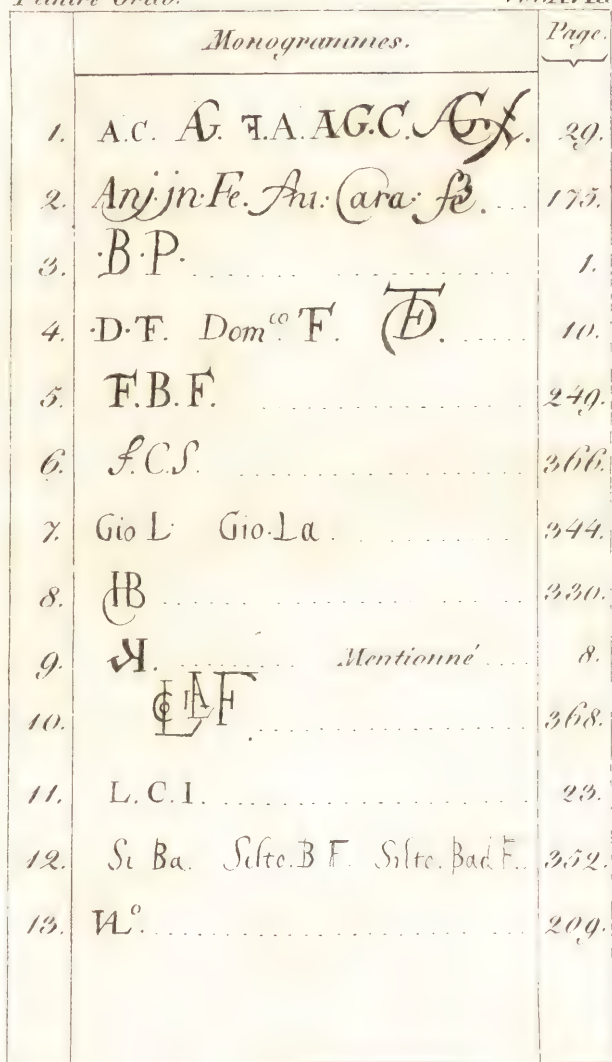 Monogrammes. Page.
1. A.C. AG. F.A. AG.C. 29.
2. Anj. jn. Fe. Ani. Cara. fe. 175.
3. ·B·P· 1.
4. ·D·F. Dom.co F. 10.
5. F.B.F. 249.
6. f.C.S. 366.
7. Gio L. Gio. La. 344.
8. HB 330.
9. Mentionné 8.
10. 368.
11. L.C.I. 23.
12. Si Ba. Silte. B F. Silte. Bad F. 352.
13. 209.